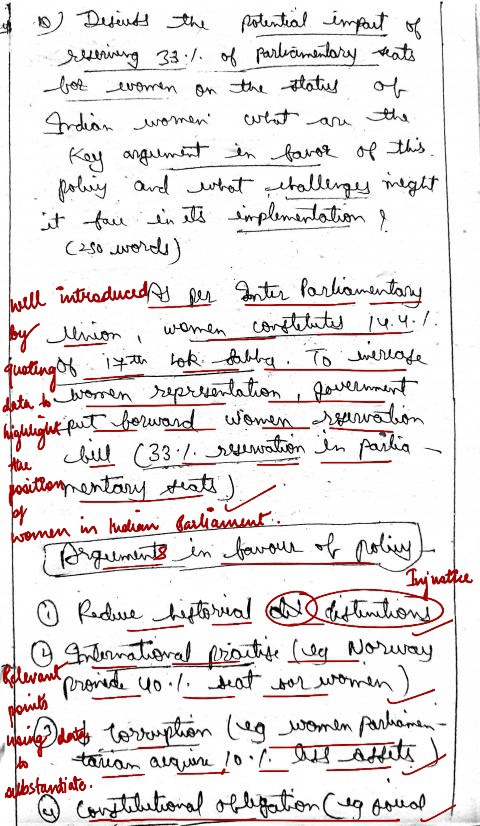 10) Discuss the potential impact of
reserving 33.1. of parliamentary seats
for women on the status of
Indian women what are the
Key argument in favor of this
policy and what challenges meight
it face in its implementation ?
(250 words)
well introduced
by
quoting
data to
highlight
the
position
of
women in Indian Parliament.
As per Inter Parliamentary
Union, women constitutes 14.4.1.
Of 17th Lok Sabha. To increase
women representation, government
put forward women rservation
bill (33.1. reservation in parlia-
mentary seats)
Arguments in favour of policy
Injustice
① Reduce historical distinctions
② International practise (eg Norway
provide 40.1. seat for women)
Relevant
points
using data
to
substantiate.
③ ↓ Corruption (eg women parliamen-
tarian acquire 10.1. less assets)
④ Constitutional obligation (eg social